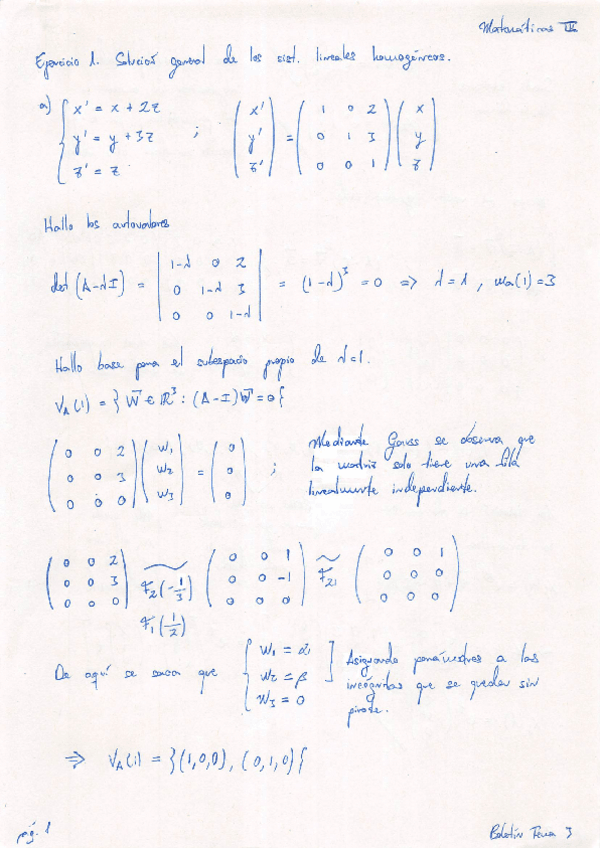 Matemáticas III
Ejercicio 1. Solución general de los sist. lineales homogéneos.
a) { x' = x + 2z ; y' = y + 3z ; z' = z ; (x' y' z') = (1 0 2 / 0 1 3 / 0 0 1) (x y z)
Hallo los autovalores
det (A-λI) = |1-λ 0 2 / 0 1-λ 3 / 0 0 1-λ| = (1-λ)³ = 0 => λ=1, ma(1)=3
Hallo base para el subespacio propio de λ=1.
V_A(1) = } W̄ ∈ ℝ³ : (A-I)W̄ = 0 {
(0 0 2 / 0 0 3 / 0 0 0) (w₁ w₂ w₃) = (0 0 0) ; Mediante Gauss se observa que
la matriz solo tiene una fila
linealmente independiente.
(0 0 2 / 0 0 3 / 0 0 0) ~ F₂(-1/3) F₁(1/2) (0 0 1 / 0 0 -1 / 0 0 0) ~ F₂₁ (0 0 1 / 0 0 0 / 0 0 0)
De aquí se saca que { w₁ = α ; w₂ = β ; w₃ = 0 ] Asignando parámetros a las
incógnitas que se quedan sin
pivote.
=> V_A(1) = }(1,0,0), (0,1,0){
pág. 1
Boletín Tema 3